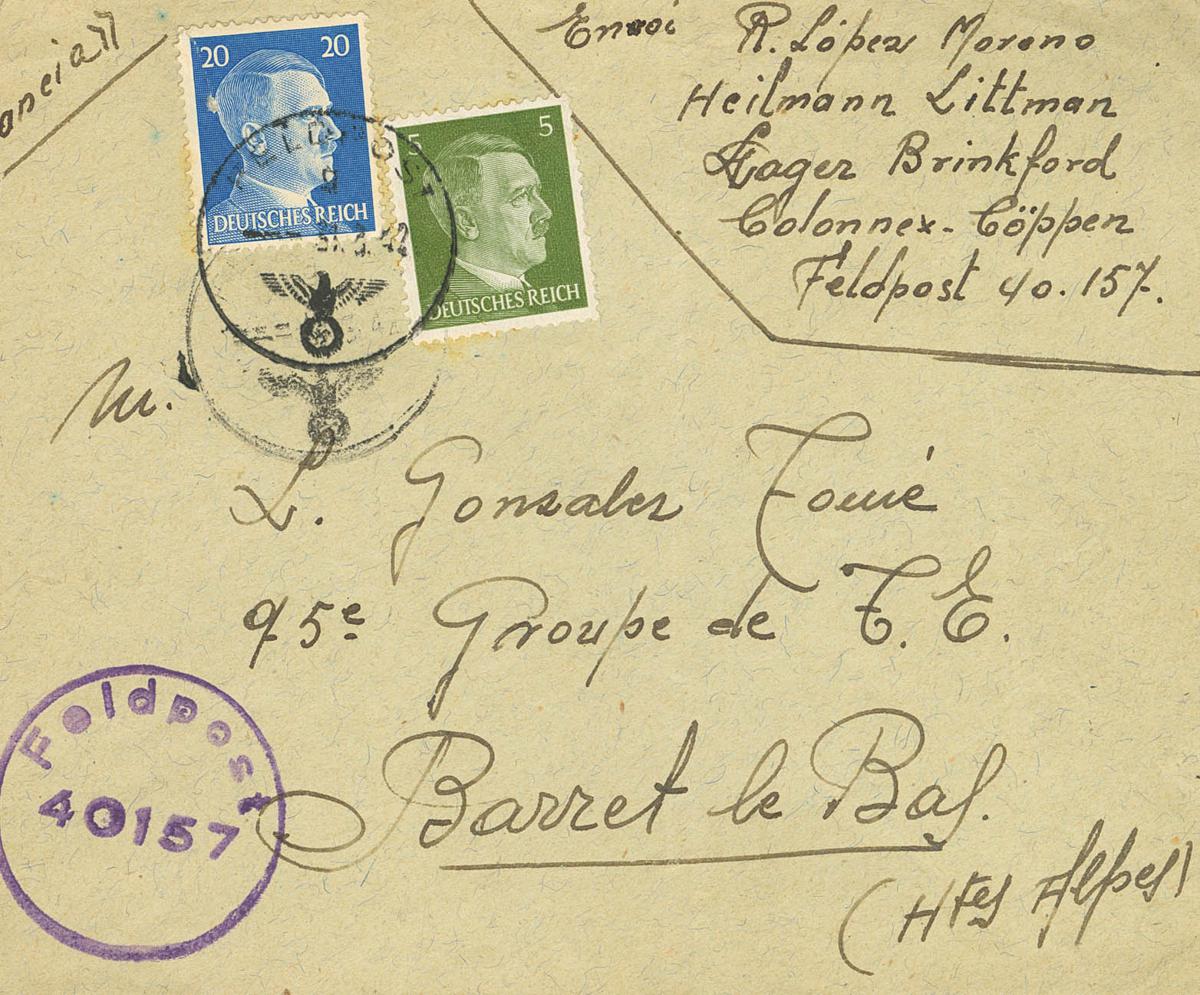 20 20
DEUTSCHES REICH
5 5
DEUTSCHES REICH
FELDPOST
Envoi R. López Moreno
Heilmann Littman
Lager Brinkford
Colonnex - Cöppen
Feldpost 40.157.
M.
L. Gonzalez
95e Groupe de T. E.
Barret le Bas.
(Htes Alpes)
Feldpost
40157